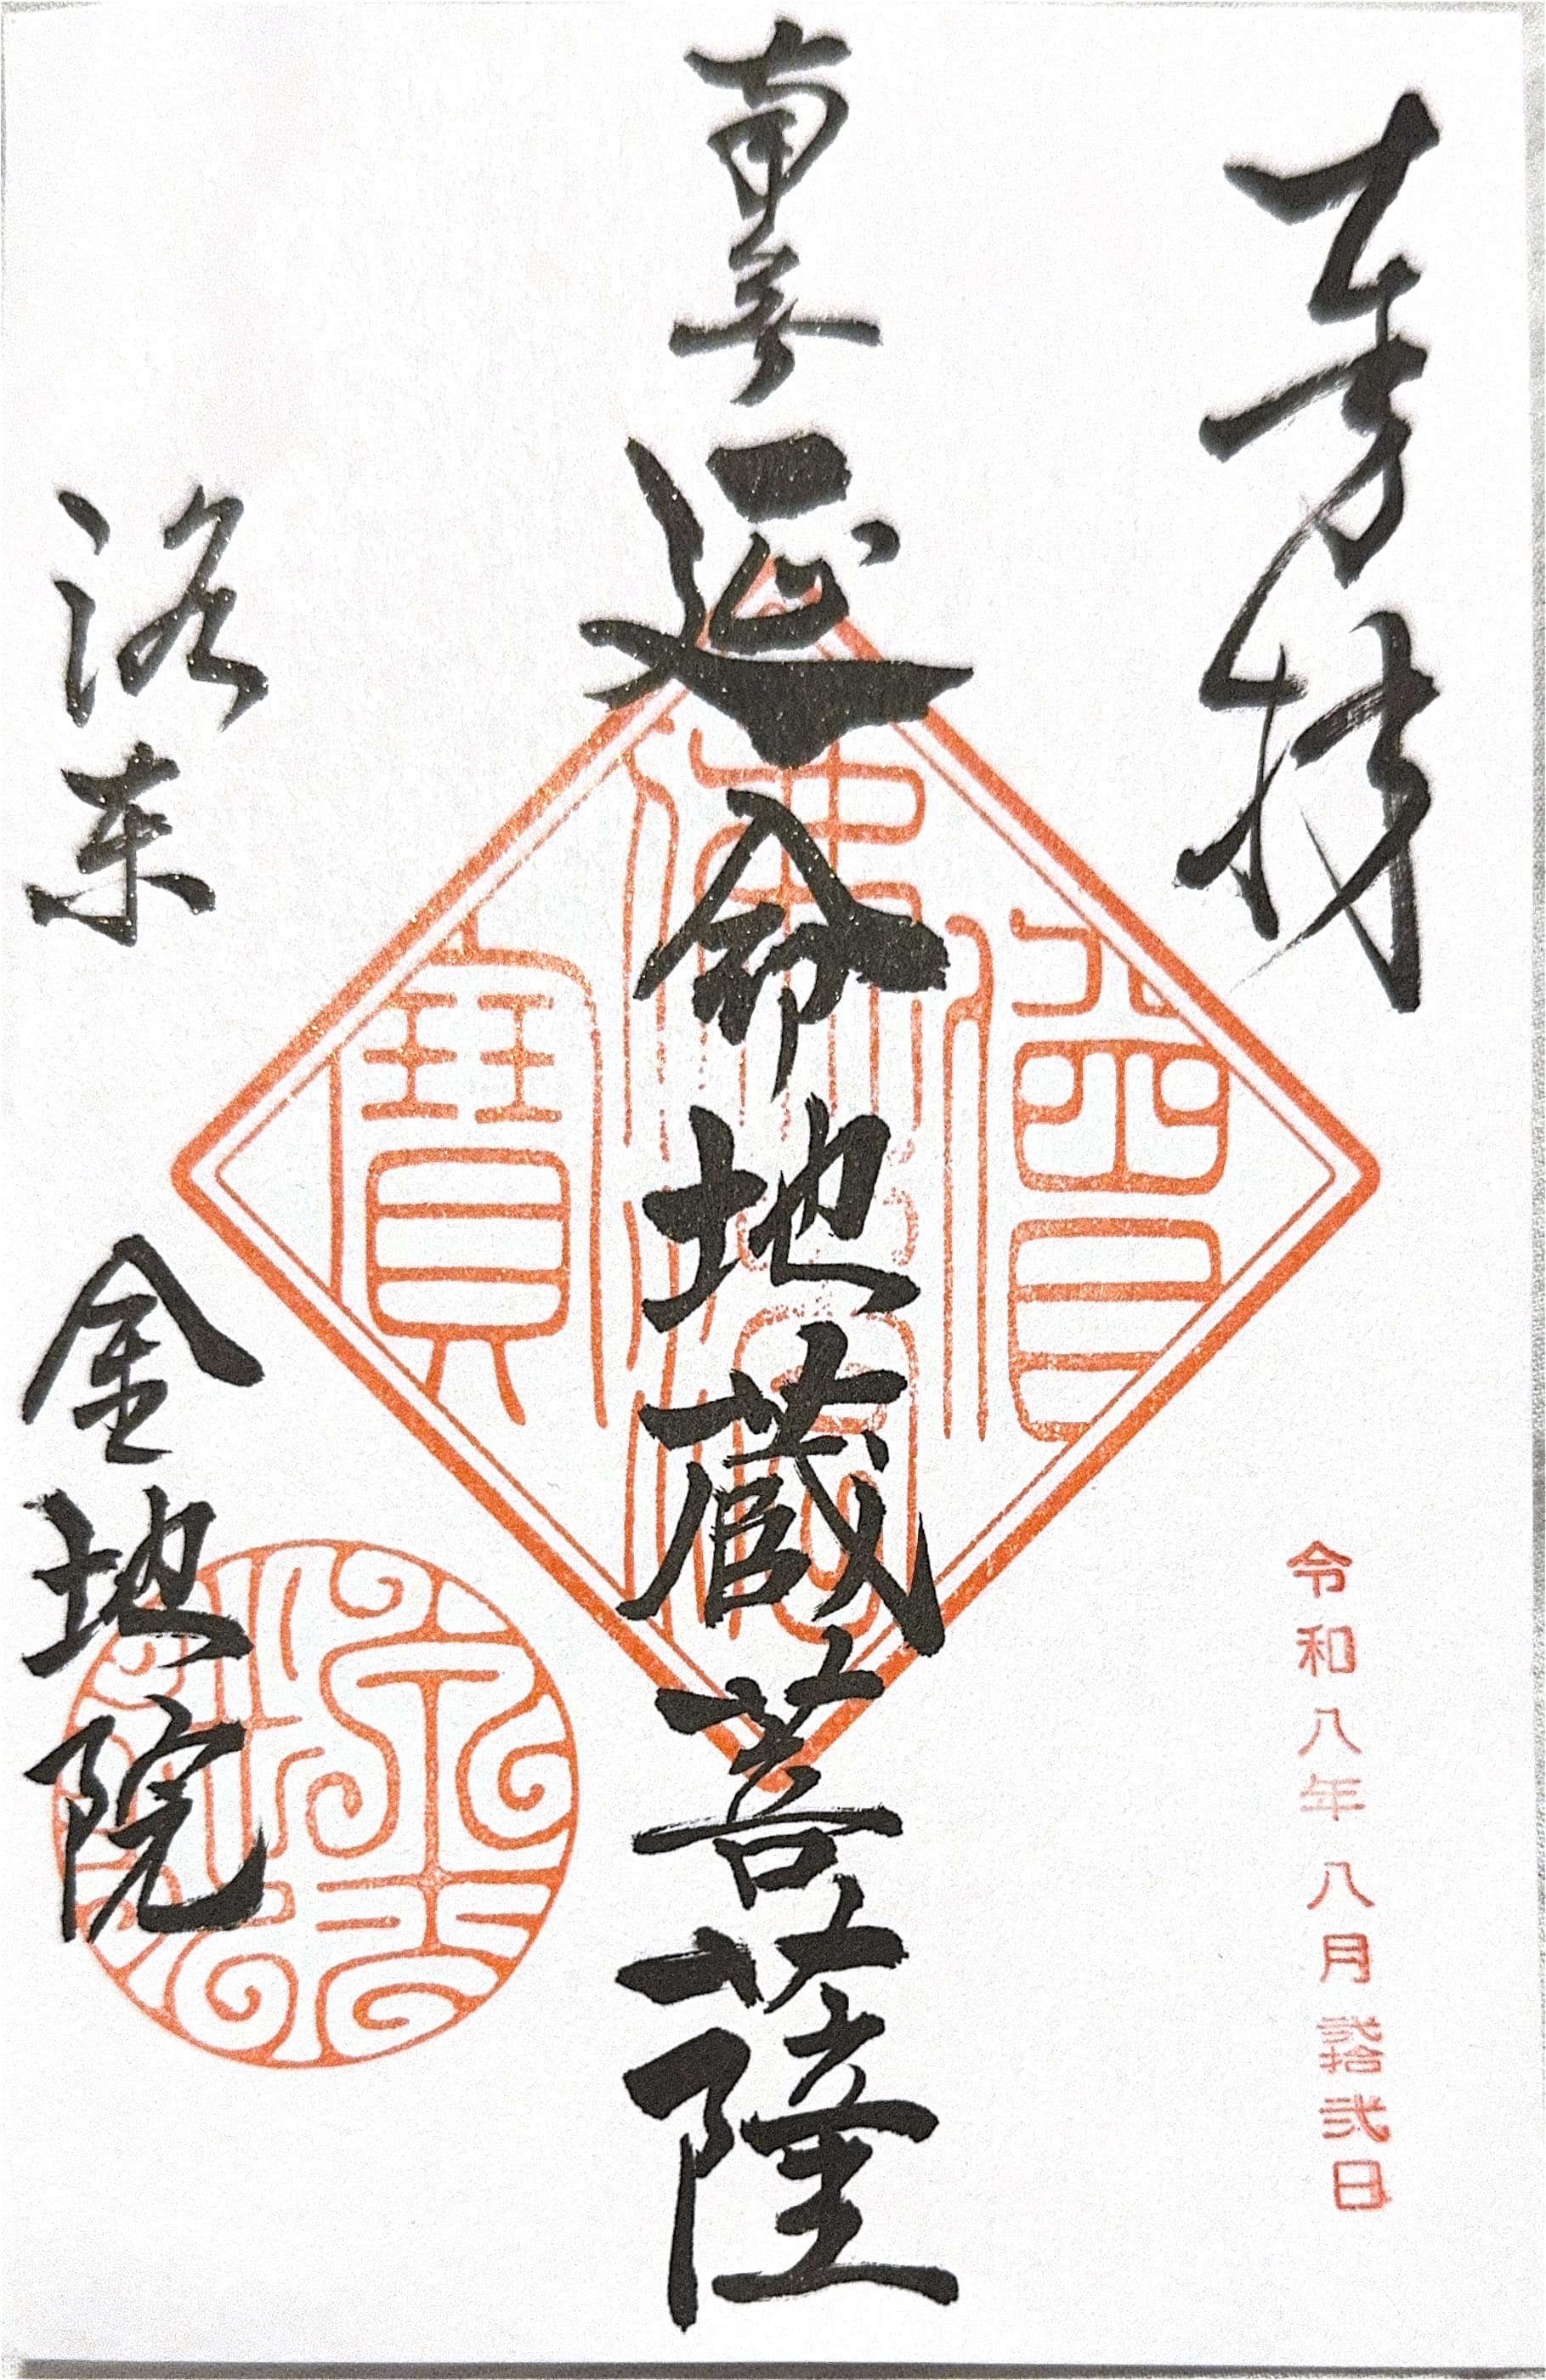 奉拝
令和八年八月弐拾弐日
南無延命地蔵菩薩
佛法僧寶
洛東
金地院